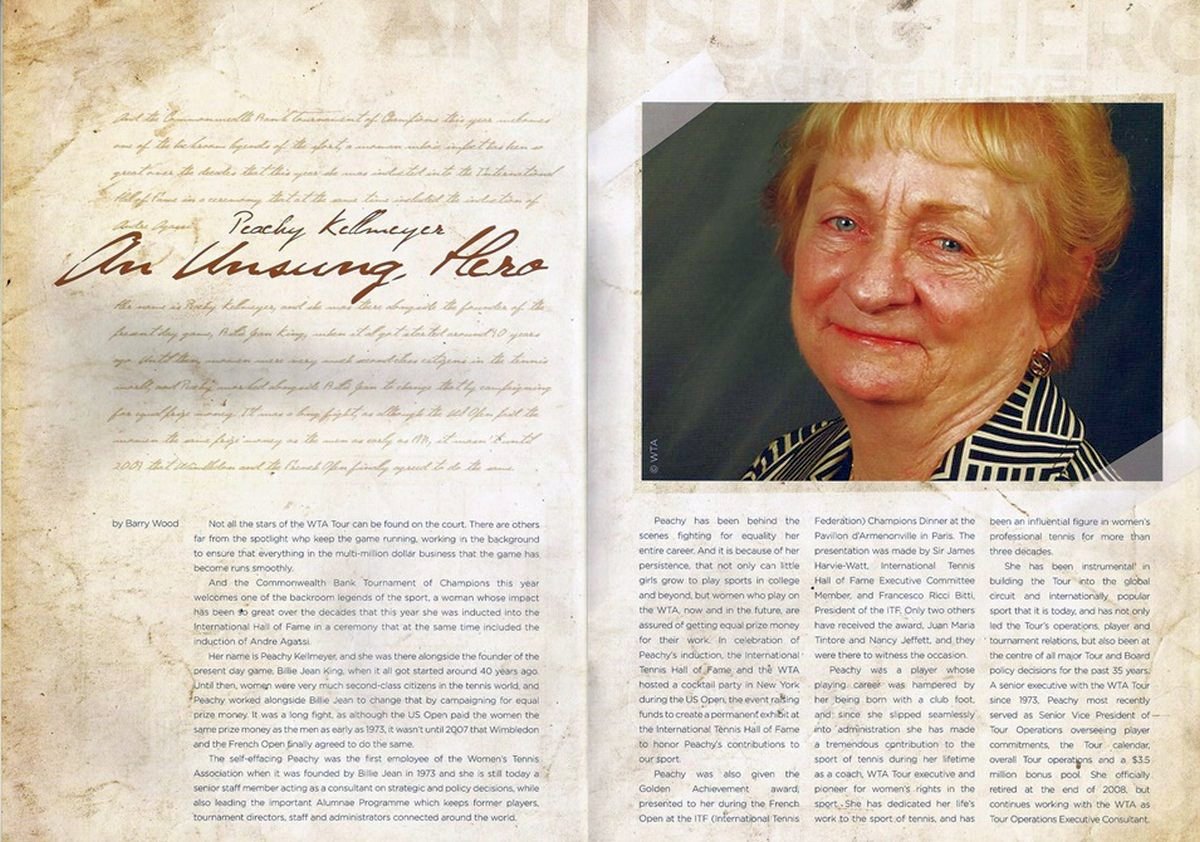 AN UNSUNG HERO
PEACHY KELLMEYER
And the Commonwealth Bank Tournament of Champions this year welcomes
one of the backroom legends of the sport, a woman whose impact has been so
great over the decades that this year she was inducted into the International
Hall of Fame in a ceremony that at the same time included the induction of
Andre Agassi.
Peachy Kellmeyer
An Unsung Hero
Her name is Peachy Kellmeyer, and she was there alongside the founder of the
present day game, Billie Jean King, when it all got started around 40 years
ago. Until then, women were very much second-class citizens in the tennis
world, and Peachy worked alongside Billie Jean to change that by campaigning
for equal prize money. It was a long fight, as although the US Open paid the
women the same prize money as the men as early as 1973, it wasn't until
2007 that Wimbledon and the French Open finally agreed to do the same.
© WTA
by Barry Wood
Not all the stars of the WTA Tour can be found on the court. There are others
far from the spotlight who keep the game running, working in the background
to ensure that everything in the multi-million dollar business that the game has
become runs smoothly.
And the Commonwealth Bank Tournament of Champions this year
welcomes one of the backroom legends of the sport, a woman whose impact
has been so great over the decades that this year she was inducted into the
International Hall of Fame in a ceremony that at the same time included the
induction of Andre Agassi.
Her name is Peachy Kellmeyer, and she was there alongside the founder of the
present day game, Billie Jean King, when it all got started around 40 years ago.
Until then, women were very much second-class citizens in the tennis world, and
Peachy worked alongside Billie Jean to change that by campaigning for equal
prize money. It was a long fight, as although the US Open paid the women the
same prize money as the men as early as 1973, it wasn't until 2007 that Wimbledon
and the French Open finally agreed to do the same.
The self-effacing Peachy was the first employee of the Women's Tennis
Association when it was founded by Billie Jean in 1973 and she is still today a
senior staff member acting as a consultant on strategic and policy decisions, while
also leading the important Alumnae Programme which keeps former players,
tournament directors, staff and administrators connected around the world.
Peachy has been behind the
scenes fighting for equality her
entire career. And it is because of her
persistence, that not only can little
girls grow to play sports in college
and beyond, but women who play on
the WTA, now and in the future, are
assured of getting equal prize money
for their work. In celebration of
Peachy's induction, the International
Tennis Hall of Fame and the WTA
hosted a cocktail party in New York
during the US Open, the event raising
funds to create a permanent exhibit at
the International Tennis Hall of Fame
to honor Peachy's contributions to
our sport.
Peachy was also given the
Golden Achievement award,
presented to her during the French
Open at the ITF (International Tennis
Federation) Champions Dinner at the
Pavilion d'Armenonville in Paris. The
presentation was made by Sir James
Harvie-Watt, International Tennis
Hall of Fame Executive Committee
Member, and Francesco Ricci Bitti,
President of the ITF. Only two others
have received the award, Juan Maria
Tintore and Nancy Jeffett, and they
were there to witness the occasion.
Peachy was a player whose
playing career was hampered by
her being born with a club foot,
and since she slipped seamlessly
into administration she has made
a tremendous contribution to the
sport of tennis during her lifetime
as a coach, WTA Tour executive and
pioneer for women's rights in the
sport. She has dedicated her life's
work to the sport of tennis, and has
been an influential figure in women's
professional tennis for more than
three decades.
She has been instrumental in
building the Tour into the global
circuit and internationally popular
sport that it is today, and has not only
led the Tour's operations, player and
tournament relations, but also been at
the centre of all major Tour and Board
policy decisions for the past 35 years.
A senior executive with the WTA Tour
since 1973, Peachy most recently
served as Senior Vice President of
Tour Operations overseeing player
commitments, the Tour calendar,
overall Tour operations and a $3.5
million bonus pool. She officially
retired at the end of 2008, but
continues working with the WTA as
Tour Operations Executive Consultant.